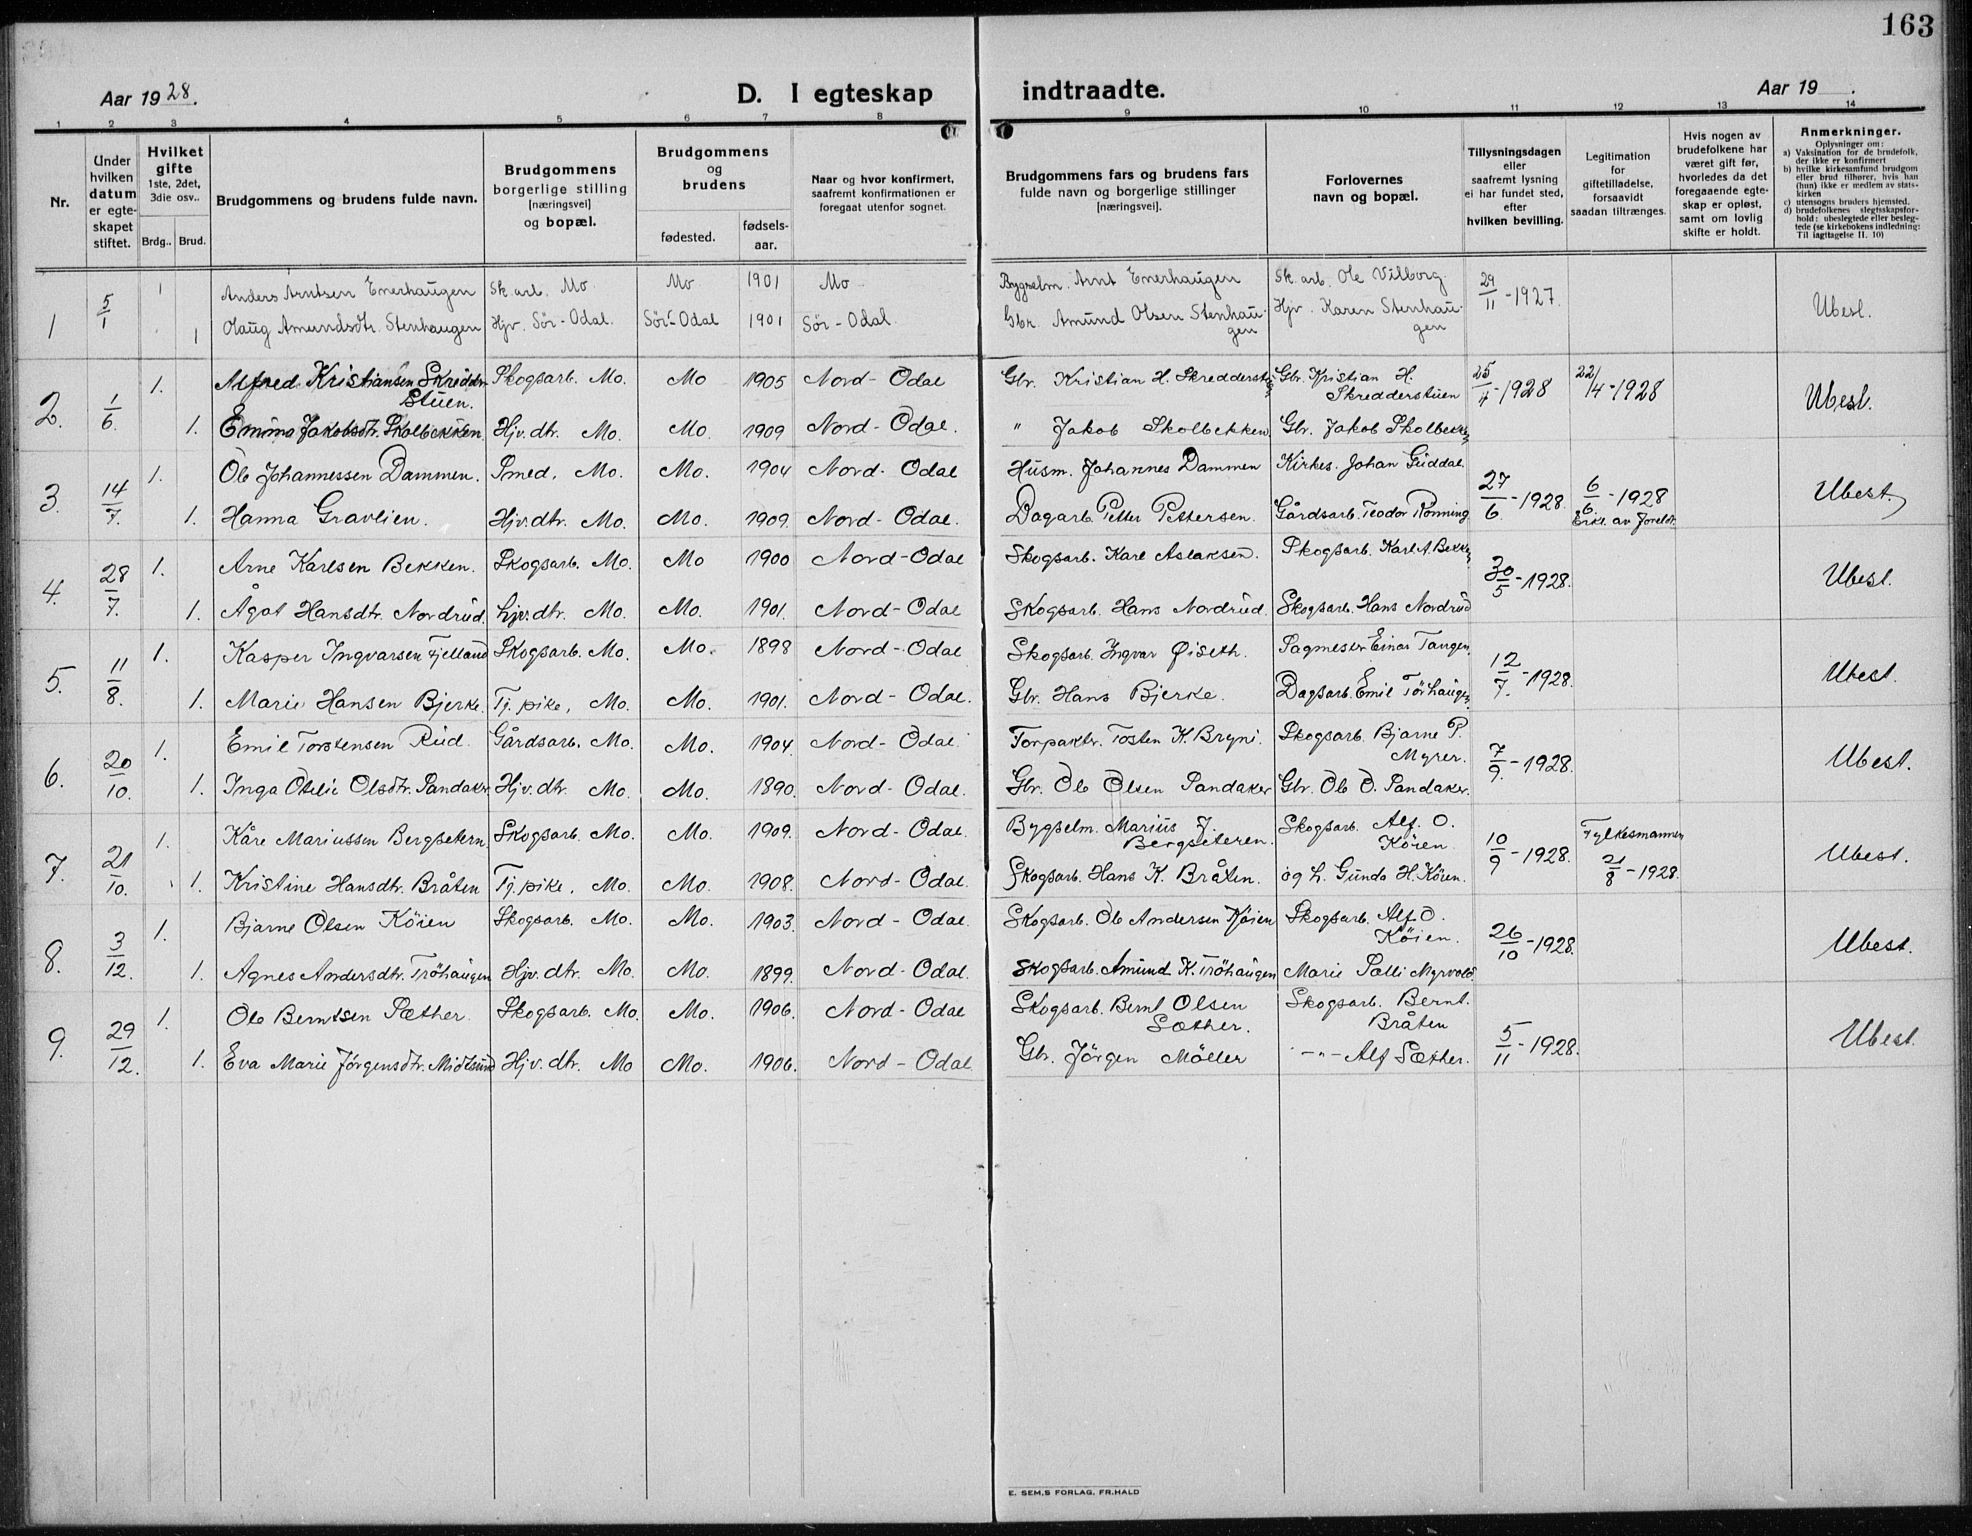 163
Aar 1928.
D. I egteskap indtraadte.
Aar 19 .
1 2 3 4 5 6 7 8 9 10 11 12 13 14
Nr.
Under hvilken datum er egteskapet stiftet.
Hvilket gifte 1ste, 2det, 3die osv..
Brdg.. Brud.
Brudgommens og brudens fulde navn.
Brudgommens borgerlige stilling [næringsvei] og bopæl.
Brudgommens og brudens
fødested.
fødsels-aar.
Naar og hvor konfirmert, saafremt konfirmationen er foregaat utenfor sognet.
Brudgommens fars og brudens fars fulde navn og borgerlige stillinger [næringsvei].
Forlovernes navn og bopæl.
Tillysningsdagen eller saafremt lysning ei har fundet sted, efter hvilken bevilling.
Legitimation for giftetilladelse, forsaavidt saadan tiltrænges.
Hvis nogen av brudefolkene har været gift før, hvorledes da det foregaaende egteskap er opløst, samt om lovlig skifte er holdt.
Anmerkninger.
Oplysninger om:
a) Vaksination for de brudefolk, der ikke er konfirmert
b) hvilke kirkesamfund brudgom eller brud tilhører, hvis han (hun) ikke er medlem av statskirken
c) utensogns bruders hjemsted.
d) brudefolkenes slegtsskapsforhold: ubeslegtede eller beslegtede (se kirkebokens indledning: Til iagttagelse II. 10)
1 5/1 1 Anders Arntsen Enerhaugen Sk. arb. Mo Mo 1901 Mo Bygselm. Arnt Enerhaugen Sk. arb. Ole Vilborg 29/11 - 1927. Ubesl.
1 Olaug Amundsdtr. Stenhaugen Hjv. Sør-Odal. Sør-Odal 1901 Sør-Odal. Gbr. Amund Olsen Stenhaugen Hjv. Karen Stenhaugen
2. 1/6. 1. Alfred Kristiansen Skredderstuen. Skogsarb. Mo. Mo 1905 Nord-Odal Gbr. Kristian H. Skredderst Gbr. Kristian H. Skredderstuen 25/4 - 1928 22/4 - 1928 Ubesl.
1. Emma Jakobsdtr. Skolbekken Hjv. dtr. Mo. Mo. 1909 Nord-Odal. " Jakob Skolbekken Gbr. Jakob Skolbekken
3. 14/7. 1. Ole Johannessen Dammen. Smed. Mo. Mo. 1904 Nord-Odal Husm. Johannes Dammen Kirkes. Johan Guddal 27/6 - 1928. 6/6. - 1928 Ubest.
1. Hanna Gravlien. Hjv. dtr. Mo. Mo. 1909. Nord-Odal. Dagarb. Petter Pettersen. Gårdsarb. Teodor Rønning Erkl. av foreldr.
4. 28/7. 1. Arne Karlsen Bekken. Skogsarb. Mo. Mo 1900 Nord-Odal Skogsarb. Karl Aslaksen. Skogsarb. Karl A. Bekken 30/5 - 1928. Ubest.
1. Ågot Hansdtr. Nordrud. Hjv. dtr. Mo. Mo. 1901. Nord-Odal Skogsarb. Hans Nordrud. Skogsarb. Hans Nordrud
5. 11/8. 1. Kasper Ingvarsen Fjelland Skogsarb. Mo. Mo. 1898 Nord-Odal Skogsarb. Ingvar Øiseth. Sagmester Einar Tangen 12/7. - 1928. Ubest.
1. Marie Hansen Bjerke. Tj. pike, Mo. Mo. 1901. Nord-Odal. Gbr. Hans Bjerke. Dagsarb. Emil Törhaugen
6. 20/10. 1. Emil Torstensen Rud. Gårdsarb. Mo. Mo. 1904. Nord-Odal Forpaktr. Tosten K. Bryni. Skogsarb. Bjarne P. Myrer. 7/9. - 1928. Ubest.
1. Inga Otelie Olsdtr. Sandaker Hjv. dtr. Mo. Mo. 1890. Nord-Odal. Gbr. Ole Olsen Sandaker Gbr. Ole O. Sandaker.
7. 21/10. 1. Kåre Mariussen Bergsetern Skogsarb. Mo. Mo. 1909. Nord-Odal. Bygselm. Marius J. Bergseteren. Skogsarb. Alf. O. Köien. 10/9 - 1928. Fylkesmannen 21/8 - 1928. Ubest.
1. Kristine Hansdtr. Bråten Tj. pike, Mo. Mo. 1908. Nord-Odal. Skogsarb. Hans K. Bråten. og h. Gunda H. Köien.
8. 3/12. 1. Bjarne Olsen Köien Skogsarb. Mo. Mo. 1903. Nord-Odal. Skogsarb. Ole Andersen Köien Skogsarb. Alf. O. Köien. 26/10 - 1928. Ubest.
1. Agnes Andersdtr. Tröhaugen Hjv. dtr. Mo. Mo. 1899. Nord-Odal. Skogsarb. Amund K. Tröhaugen Marie Myrvold
9. 29/12. 1. Ole Berntsen Sæther. Skogsarb. Mo. Mo. 1906. Nord-Odal Skogsarb. Bernt Olsen Sæther. Skogsarb. Bernt. Bråten 5/11 - 1928. Ubest.
1. Eva Marie Jörgensdtr. Midtsund Hjv. dtr. Mo Mo. 1906. Nord-Odal Gbr. Jörgen Möller -"- Alf Sæther.
E. SEM,S FORLAG, FR.HALD